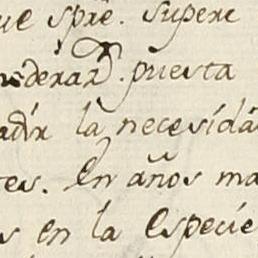 ue spre. supere
nsderar. puesta
adir la necesida
tes. En años ma
s en la Especie